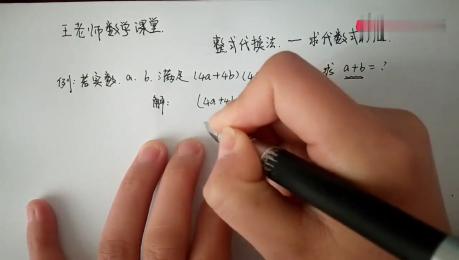 王老师数学课堂
整式代换法 — 求代数式的值.
例: 若实数. a. b. 满足 (4a+4b)(4 求 a+b = ?
解: (4a+4